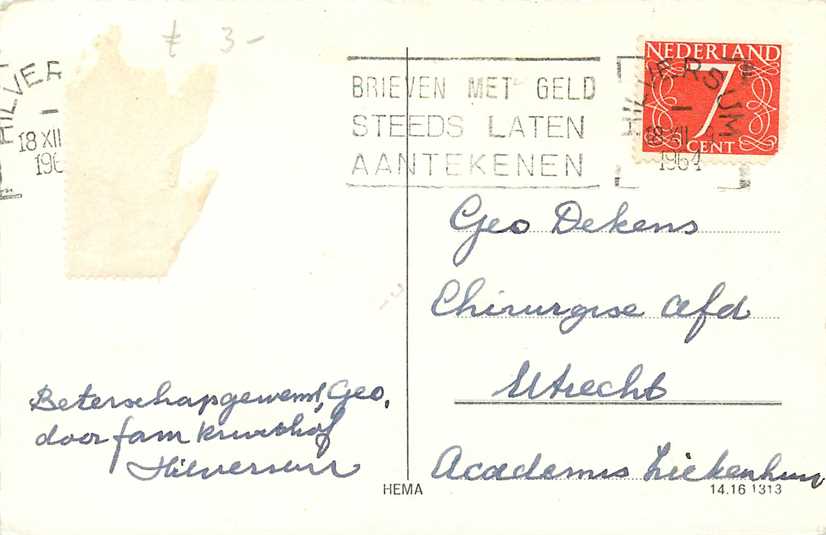 ƒ 3-
HILVER
18 XII
196
BRIEVEN MET GELD
STEEDS LATEN
AANTEKENEN
HILVERSUM
18 XII
1964
NEDERLAND
7
CENT
Geo Dekens
Chirurgise afd
Utrecht
Academis Ziekenhuis
Beterschapgewenst, Geo,
door fam
Hilversum
HEMA
14.16 1313